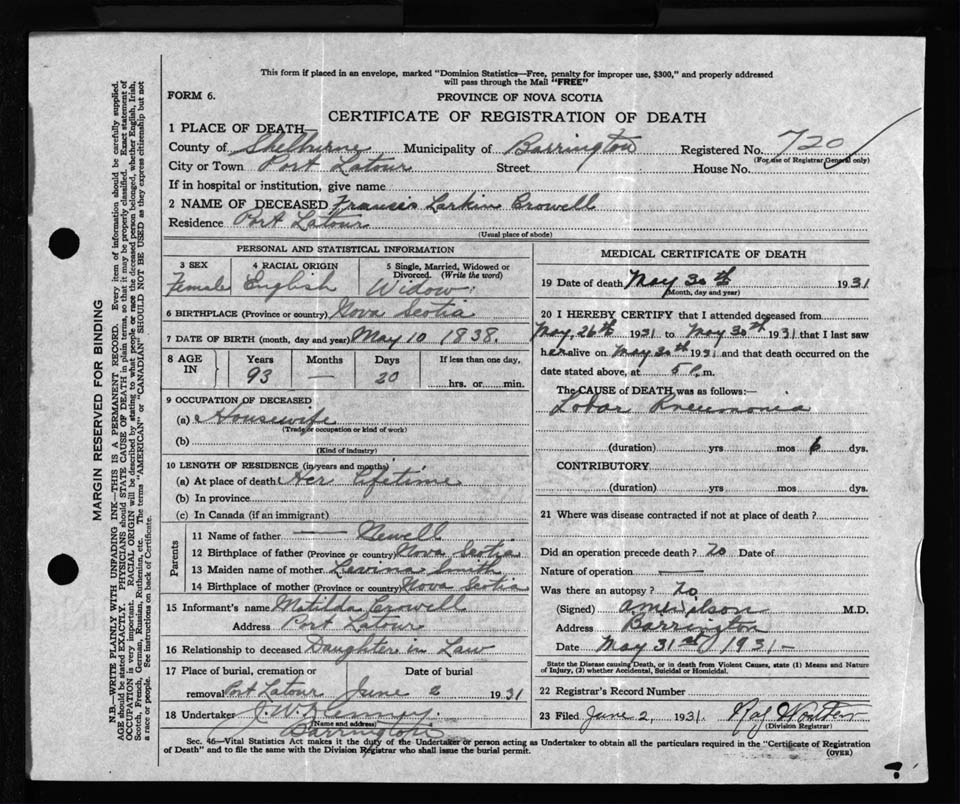 This form if placed in an envelope, marked "Dominion Statistics—Free, penalty for improper use, $300," and properly addressed
will pass through the Mail "FREE"
FORM 6.
PROVINCE OF NOVA SCOTIA
CERTIFICATE OF REGISTRATION OF DEATH
1 PLACE OF DEATH
County of Shelburne Municipality of Barrington Registered No. 720
(For use of Registrar General only)
City or Town Port Latour Street House No.
If in hospital or institution, give name
2 NAME OF DECEASED Francis Larkin Crowell
Residence Port Latour
(Usual place of abode)
PERSONAL AND STATISTICAL INFORMATION
3 SEX
Female
4 RACIAL ORIGIN
English
5 Single, Married, Widowed or
Divorced. (Write the word)
Widow
6 BIRTHPLACE (Province or country) Nova Scotia
7 DATE OF BIRTH (month, day and year) May 10 1838.
8 AGE IN
Years Months Days If less than one day,
93 — 20 hrs. or min.
9 OCCUPATION OF DECEASED
(a) Housewife
(Trade occupation or kind of work)
(b)
(Kind of industry)
10 LENGTH OF RESIDENCE (in years and months)
(a) At place of death Her lifetime
(b) In province
(c) In Canada (if an immigrant)
Parents
11 Name of father — Newell
12 Birthplace of father (Province or country) Nova Scotia
13 Maiden name of mother Lavina Smith
14 Birthplace of mother (Province or country) Nova Scotia
15 Informant's name Matilda Crowell
Address Port Latour
16 Relationship to deceased Daughter in Law
17 Place of burial, cremation or Date of burial
removal Port Latour June 2 1931
18 Undertaker
(Name and address)
Barrington
MEDICAL CERTIFICATE OF DEATH
19 Date of death May 30th 1931
(Month, day and year)
20 I HEREBY CERTIFY that I attended deceased from
May, 26th 1931 to May 30th 1931 that I last saw
her alive on May 30th 1931 and that death occurred on the
date stated above, at 5 P.m.
The CAUSE of DEATH was as follows:
Lobar Pneumonia
(duration) yrs mos 6 dys.
CONTRIBUTORY
(duration) yrs mos dys.
21 Where was disease contracted if not at place of death?
Did an operation precede death? no Date of
Nature of operation —
Was there an autopsy? no
(Signed) Wilson M.D.
Address Barrington
Date May 31st 1931-
State the Disease causing Death, or in death from Violent Causes, state (1) Means and Nature
of Injury, (2) whether Accidental, Suicidal or Homicidal.
22 Registrar's Record Number
23 Filed June 2, 1931.
(Division Registrar)
Sec. 46—Vital Statistics Act makes it the duty of the Undertaker or person acting as Undertaker to obtain all the particulars required in the "Certificate of Registration
of Death" and to file the same with the Division Registrar who shall issue the burial permit.
(OVER)
MARGIN RESERVED FOR BINDING
N.B.—WRITE PLAINLY WITH UNFADING INK—THIS IS A PERMANENT RECORD. Every item of information should be carefully supplied.
AGE should be stated EXACTLY. PHYSICIANS should STATE CAUSE OF DEATH in plain terms, so that it may be properly classified. Exact statement of
OCCUPATION is very important. RACIAL ORIGIN will be described by stating to what people or race the deceased person belonged, whether English, Irish,
Scotch, French, German, Russian, Ruthenian, etc. The terms "AMERICAN" or "CANADIAN" SHOULD NOT BE USED as they express citizenship but not
a race or people. See instructions on back of Certificate.